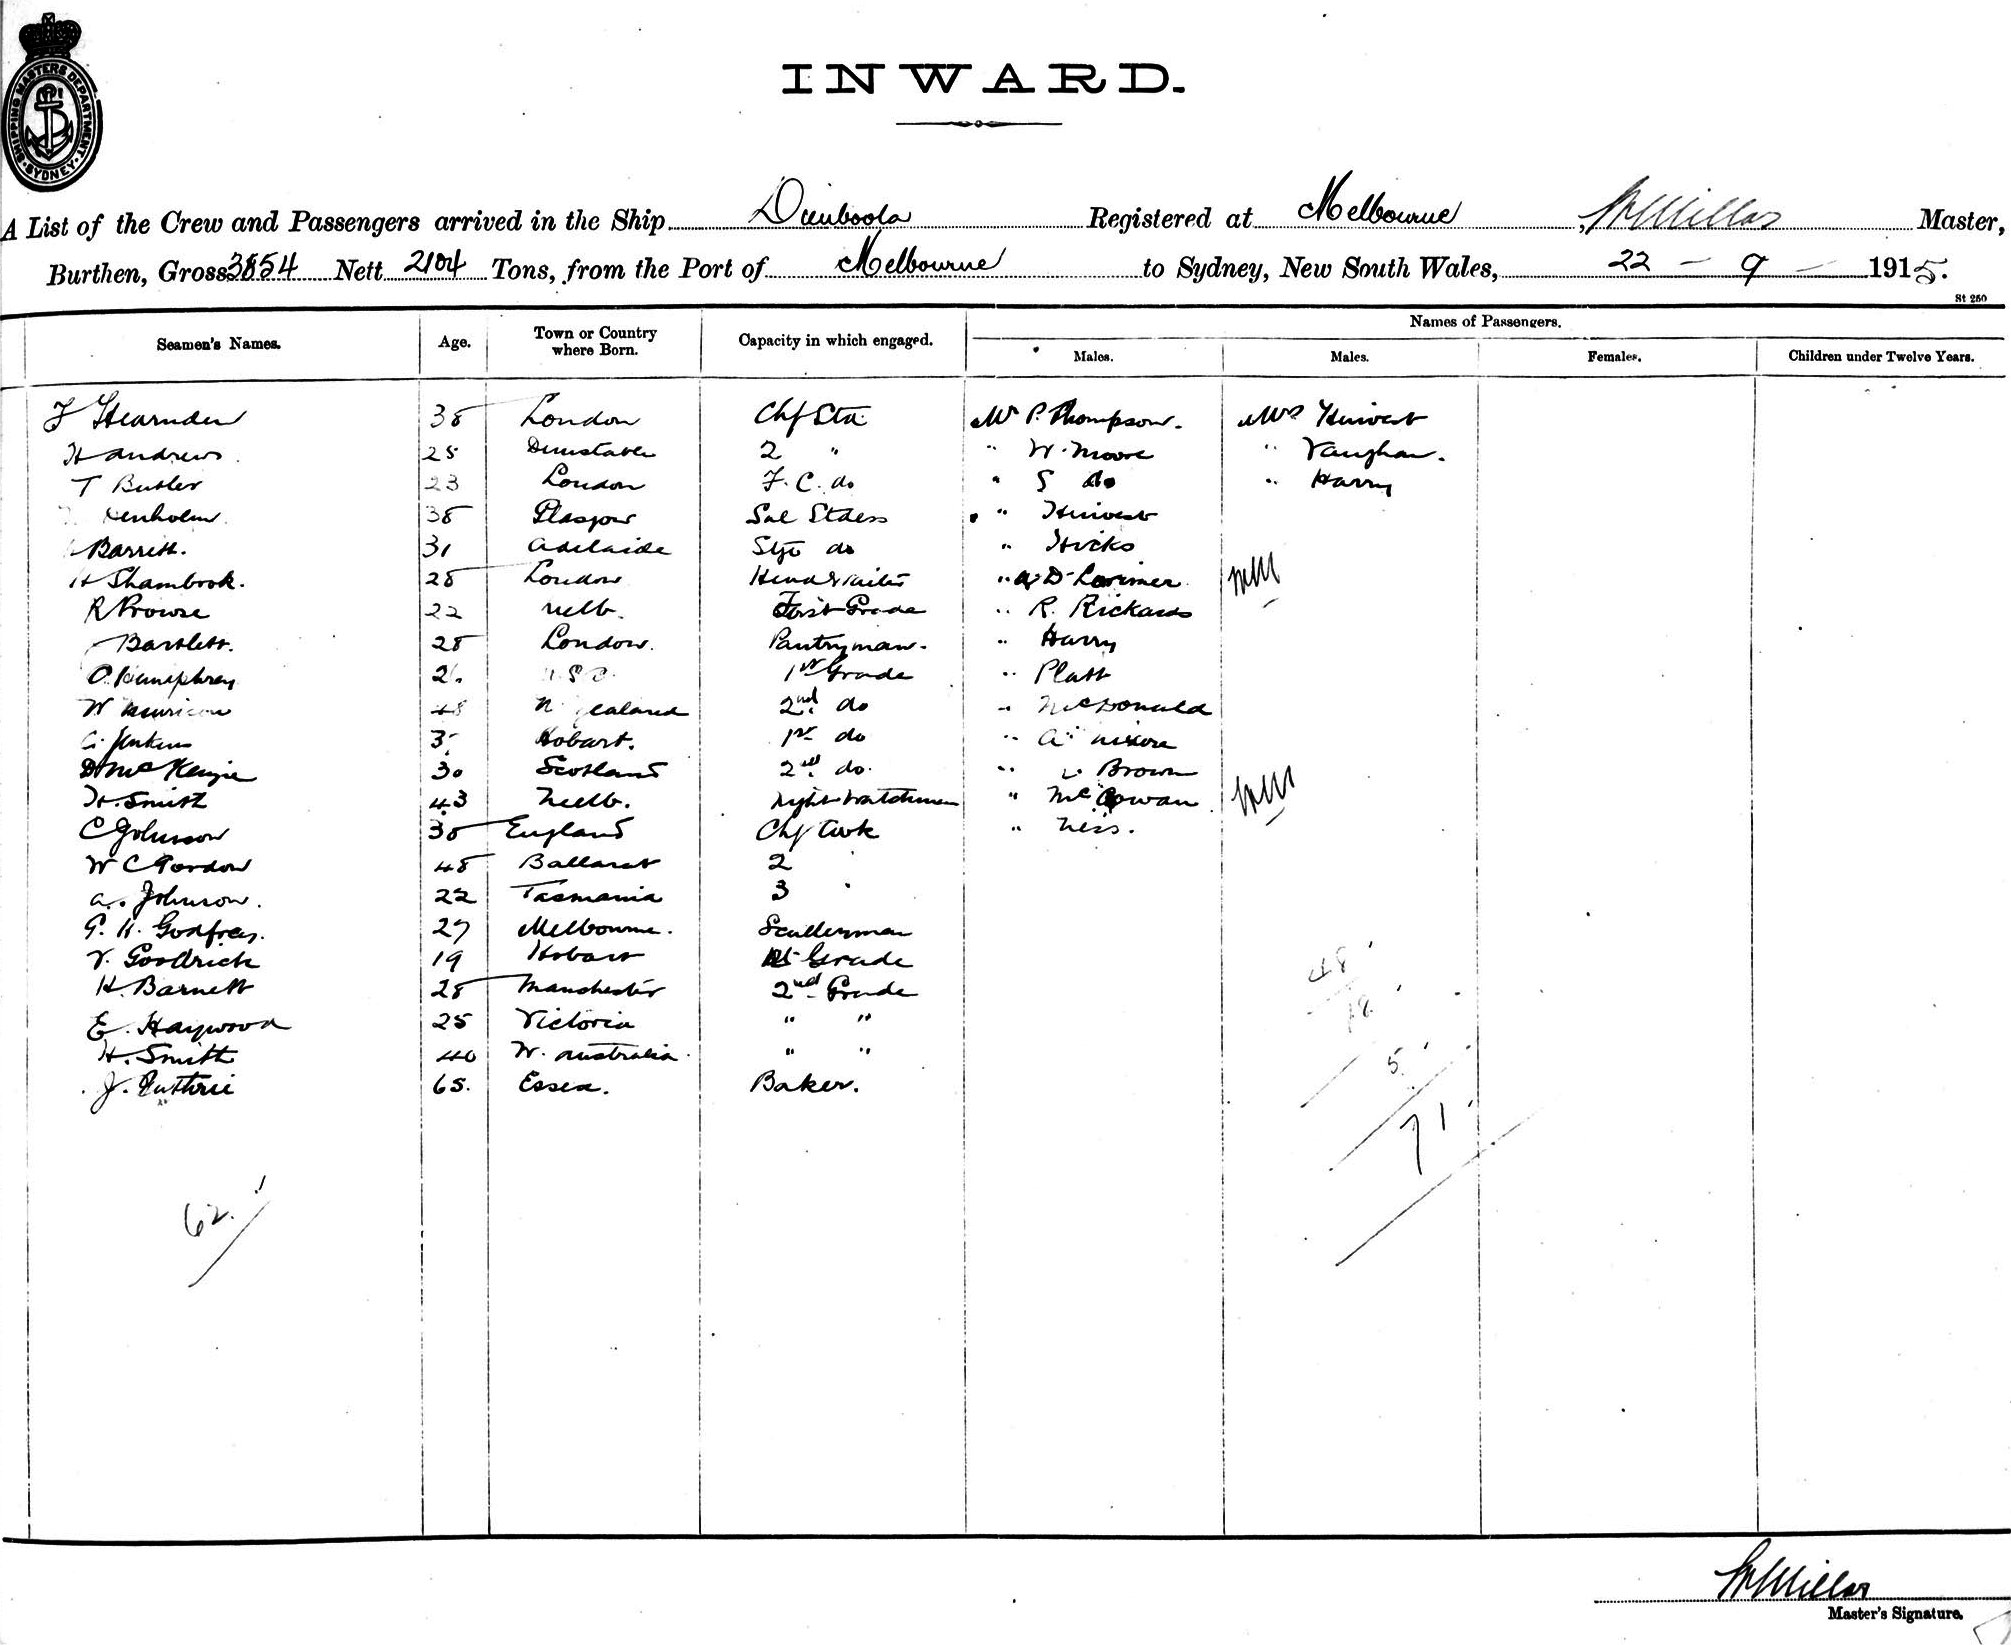 SHIPPING MASTERS DEPARTMENT. SYDNEY.
INWARD.
A List of the Crew and Passengers arrived in the Ship Dimboola Registered at Melbourne, Master,
Burthen, Gross 3854 Nett 2104 Tons, from the Port of Melbourne to Sydney, New South Wales, 22 - 9 - 1915.
St 250
Names of Passengers.
Seamen's Names. Age. Town or Country where Born. Capacity in which engaged. Males. Males. Females. Children under Twelve Years.
F Hearnden 38 London Chf Mr P. Thompson. Mrs
H Andrews. 25 Dunstable 2 " " W. Moore " Vaughan.
T Butler 23 London F. C. do " S do " Harry
38 Glasgow "
Barrett. 31 Adelaide do " Hicks
H Shambrook. 28 London Head Waiter " A D Lorimer
R Prowse 22 Melb. First Grade " R. Rickards
Bartlett. 28 London. Pantryman. " Harry
Humphrey 1st Grade " Platt
W 48 2nd do " McDonald
Jenkins Hobart. 1st do " A
D McKenzie 30 Scotland 2nd do. " Brown
H. Smith 43 Melb. Night Watchman " McCowan
C Johnson 38 England Chf Cook " Ness.
W C Gordon 48 Ballarat 2
A. Johnson. 22 Tasmania 3 "
G. H. Godfrey. 27 Melbourne. Scullerman
V. Goodrick 19 Hobart 1st Grade
H. Barnett 28 Manchester 2nd Grade
E. Haywood 25 Victoria " "
H. Smith 40 W. Australia. " "
J. Guthrie 65. Essex. Baker.
48
18
5
71
62.
Master's Signature.